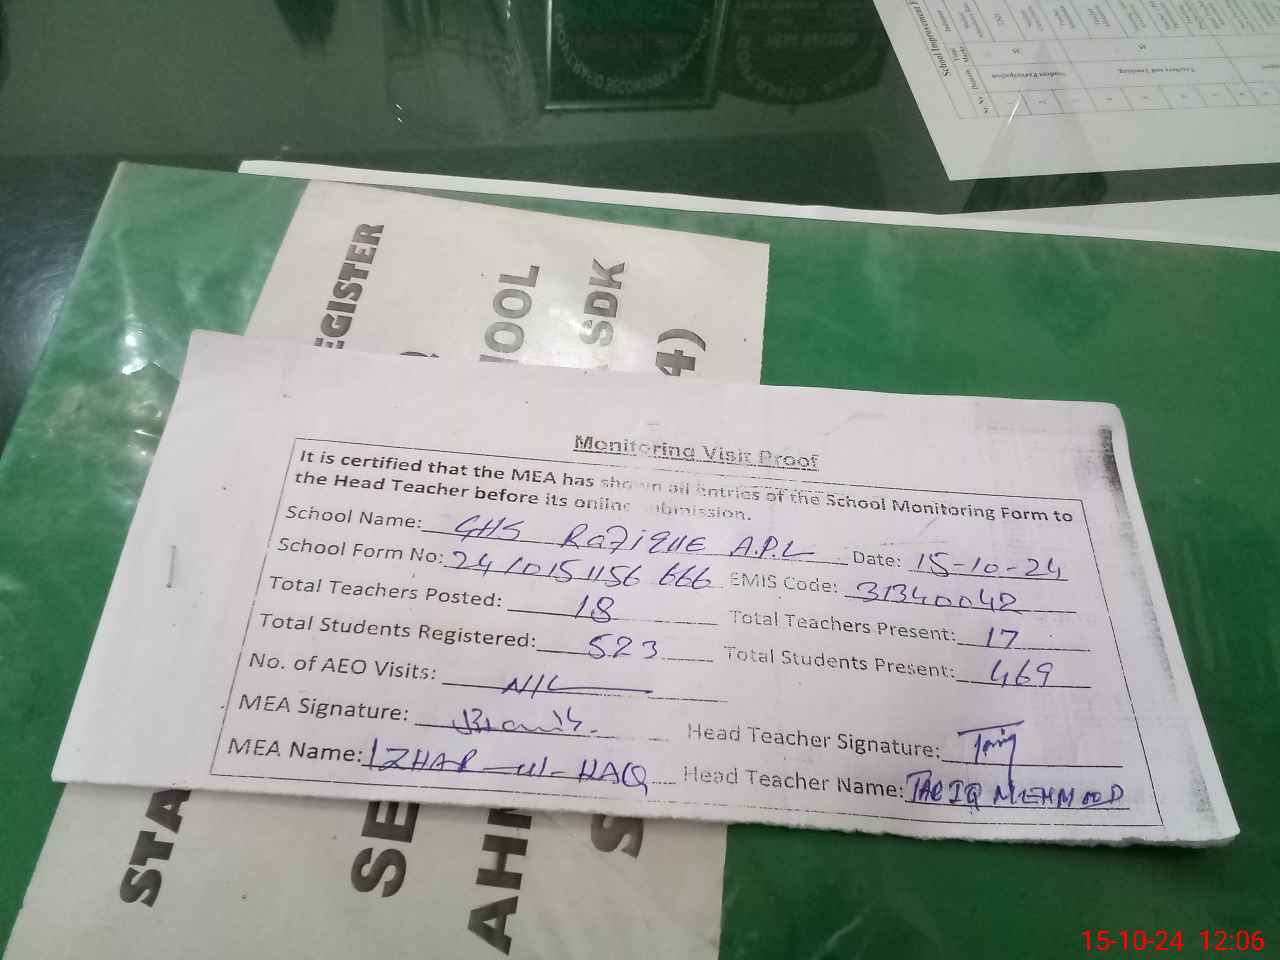 School Improvement
Student Participation
Teachers and Teaching
EGISTER
OOL
SDK
4)
Monitoring Visit Proof
It is certified that the MEA has shown all entries of the School Monitoring Form to
the Head Teacher before its online submission.
School Name: GHS RAFIQUE A.P.L Date: 15-10-24
School Form No: 2410151156 666 EMIS Code: 31340042
Total Teachers Posted: 18 Total Teachers Present: 17
Total Students Registered: 523 Total Students Present: 469
No. of AEO Visits: NIL
MEA Signature: Head Teacher Signature: Tariq
MEA Name: IZHAR-ul-HAQ Head Teacher Name: TARIQ MEHMOOD
STA
SE
AHM
S
15-10-24 12:06